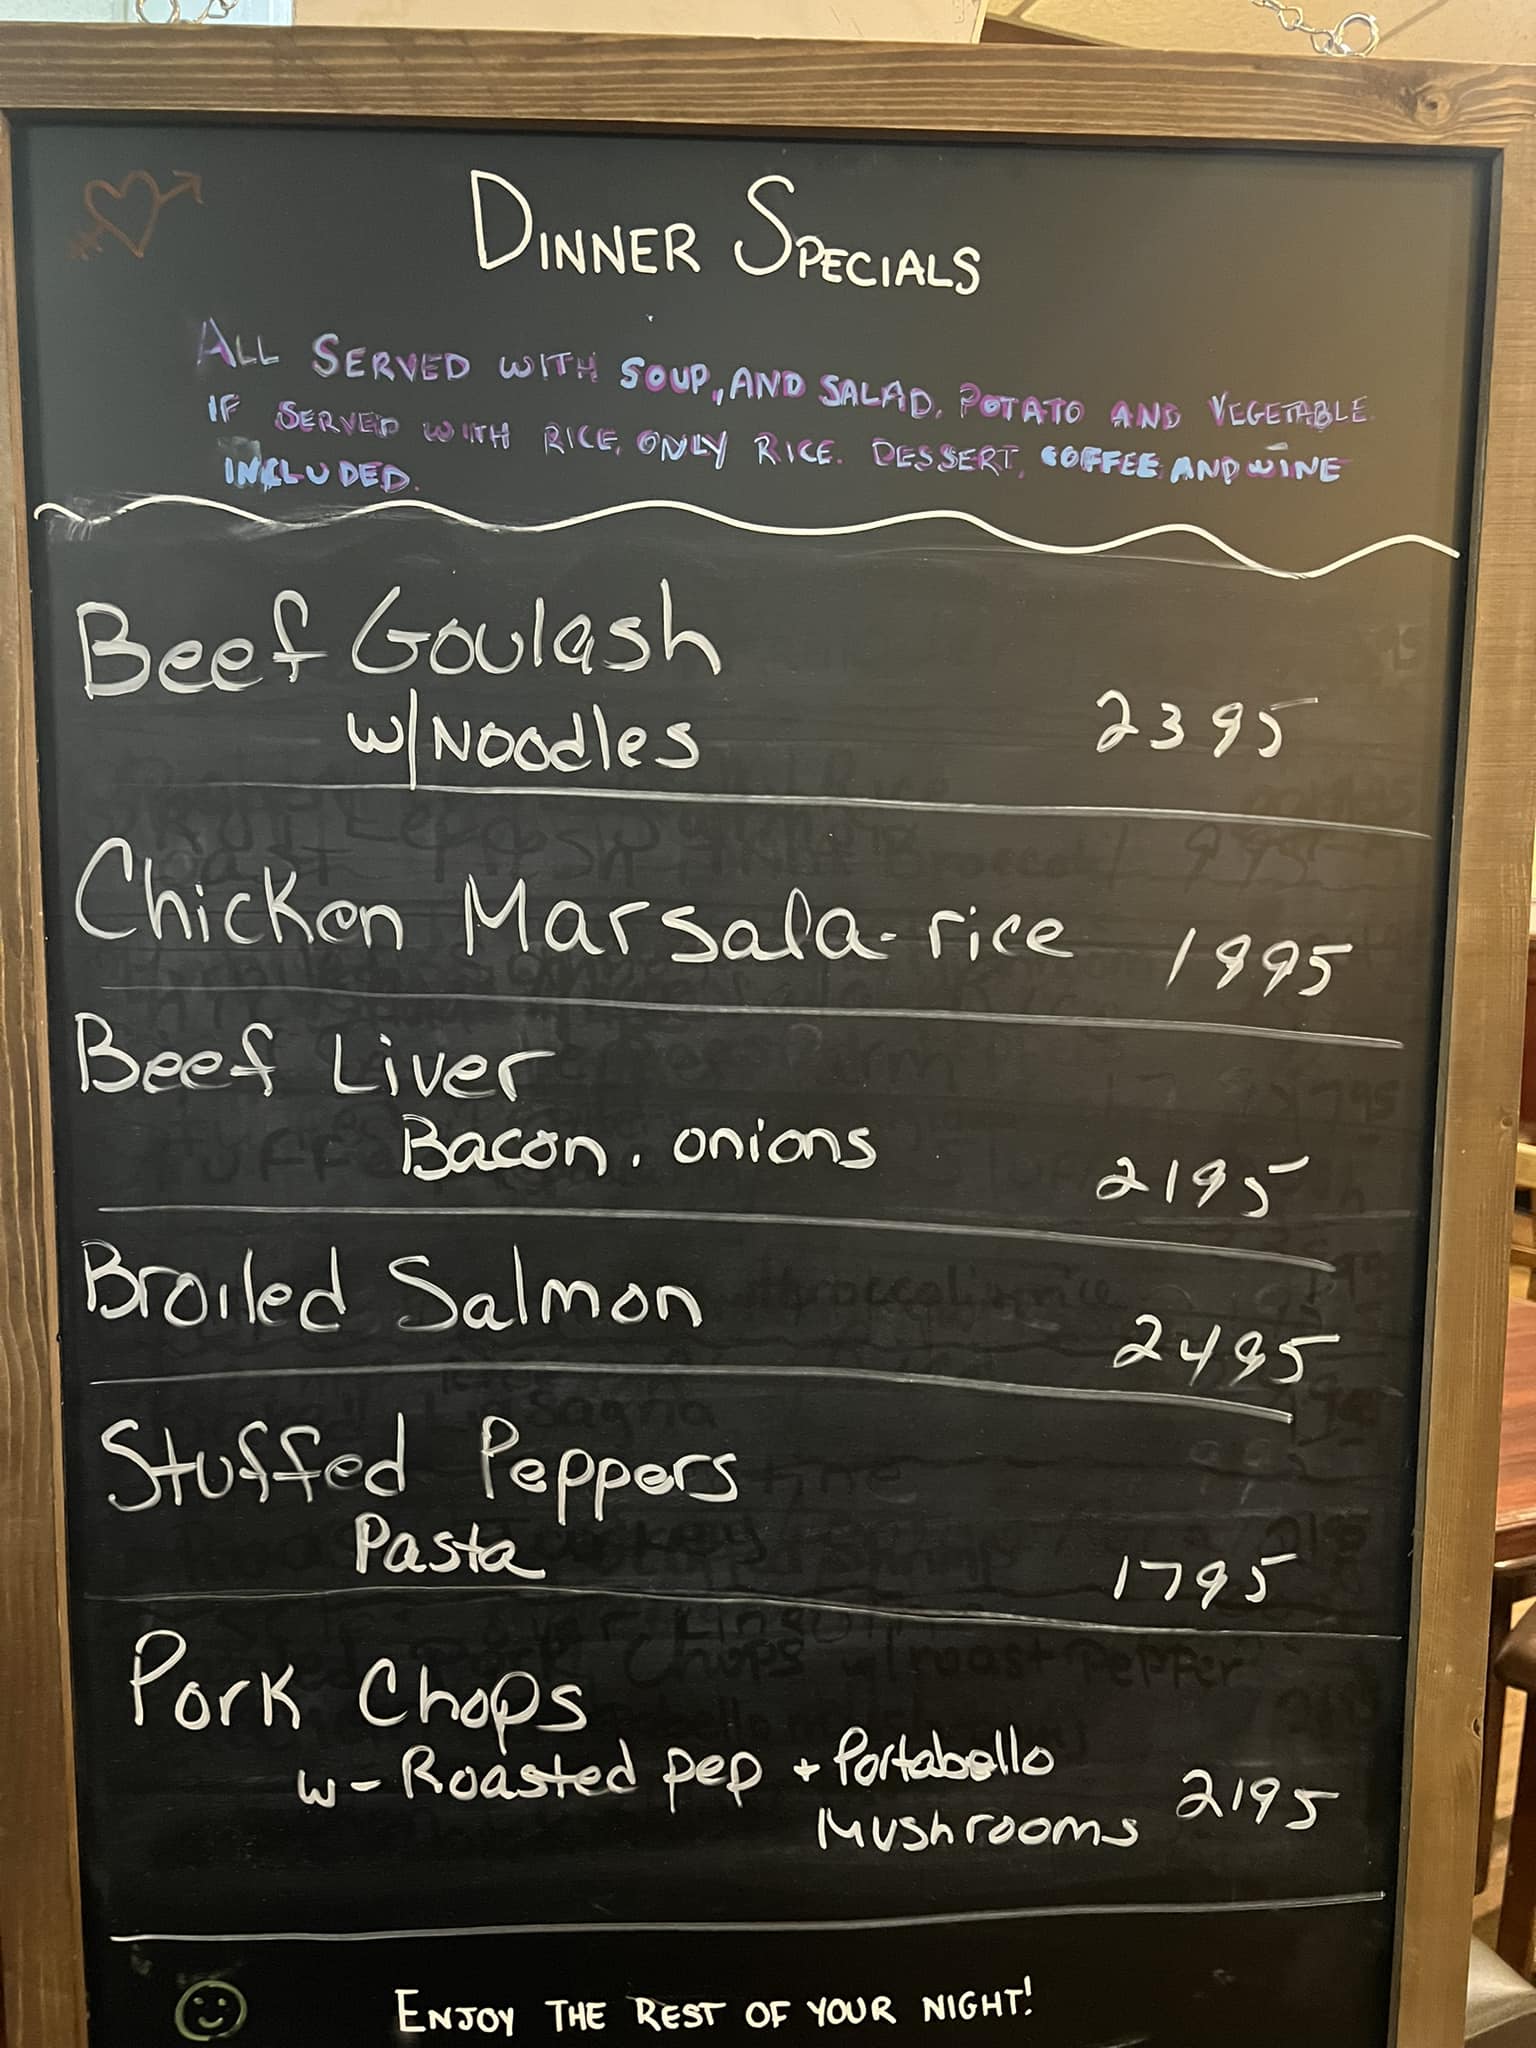 DINNER SPECIALS
ALL SERVED WITH SOUP, AND SALAD, POTATO AND VEGETABLE
IF SERVED WITH RICE, ONLY RICE. DESSERT, COFFEE AND WINE
INCLUDED.
Beef Goulash
w/Noodles 2395
Chicken Marsala-rice 1995
Beef Liver
Bacon, onions 2195
Broiled Salmon 2495
Stuffed Peppers
Pasta 1795
Pork Chops
w- Roasted pep + Portabello
Mushrooms 2195
ENJOY THE REST OF YOUR NIGHT!